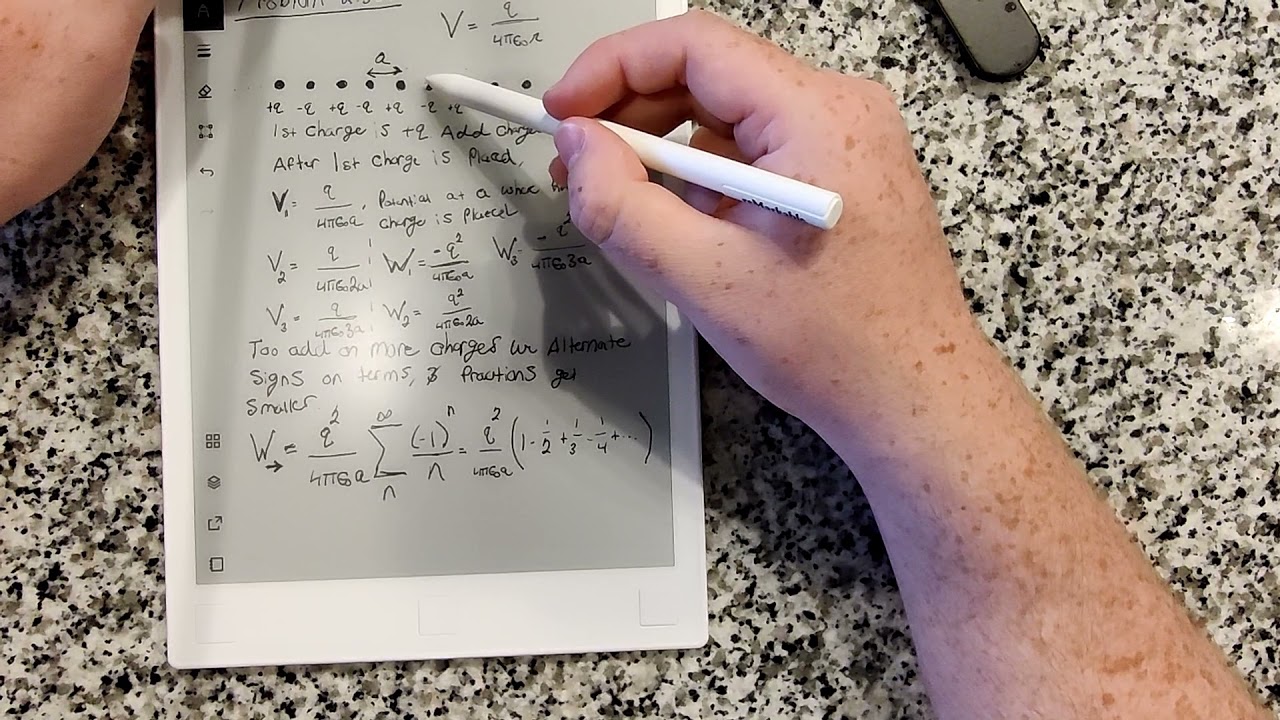 V = q / 4πϵ₀r
a
+q -q +q -q +q -q +q
1st charge is +q Add charge
After 1st charge is Placed,
V₁ = q / 4πϵ₀a , Potential at a where
charge is Placed
V₂ = q / 4πϵ₀2a ; W₁ = -q² / 4πϵ₀a W₃ = -q² / 4πϵ₀3a
V₃ = q / 4πϵ₀3a ; W₂ = q² / 4πϵ₀2a
Too add on more charges we Alternate
Signs on terms, & Fractions get
Smaller
W = q² / 4πϵ₀a ∑ₙ^∞ (-1)ⁿ / n = q² / 4πϵ₀a (1 - 1/2 + 1/3 - 1/4 + ...)